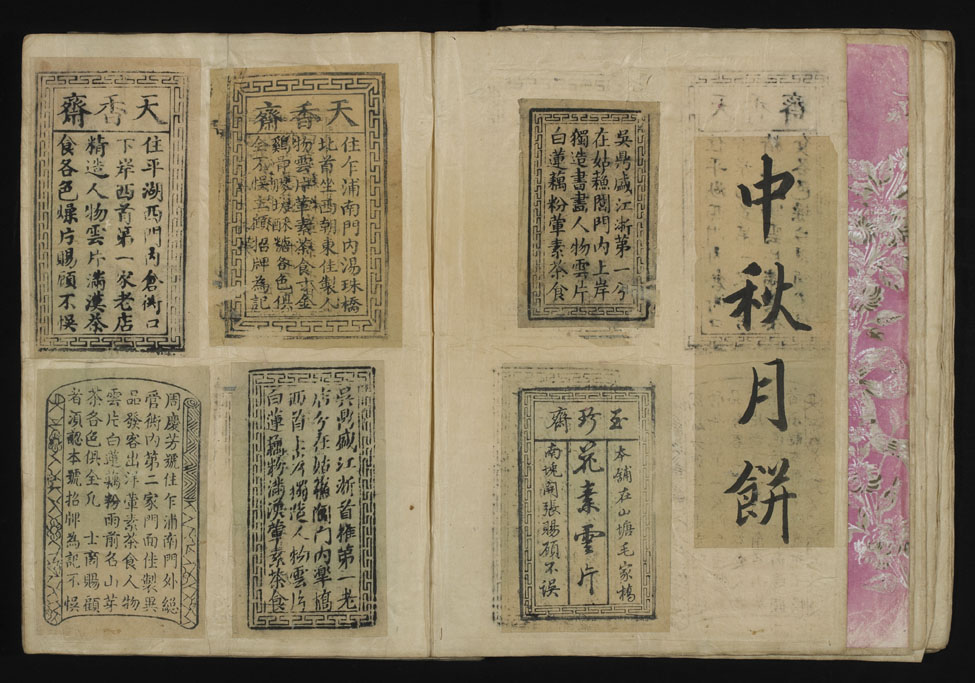 中秋月餅
吳鼎盛江浙第一分
在姑蘓閶門內上岸
獨造書畫人物雲片
白蓮藕粉葷素茶食
玉珍齋
本舖在山塘毛家橋
花素雲片
南堍開張賜顧不悮
天香齋
住乍浦南門內湯珠橋
北首坐西朝東住製人
物雲片葷素茶食
糖各色俱
全不悮主顧招牌為記
天香齋
住平湖西門內倉衖口
下岸西首第一家老店
精造人物雲片滿漢茶
食各色燥片賜顧不悮
吳鼎盛江浙首推第一老
店分在姑蘓閶門內臯橋
西首上岸獨造人物雲片
白蓮藕粉滿漢葷素茶食
周慶芳號住乍浦南門外總
管衖內第二家門面住製異
品發客出汴葷素茶食人物
雲片白蓮藕粉雨前名山芽
茶各色俱全凡 士商賜顧
者須認本號招牌為記不悮